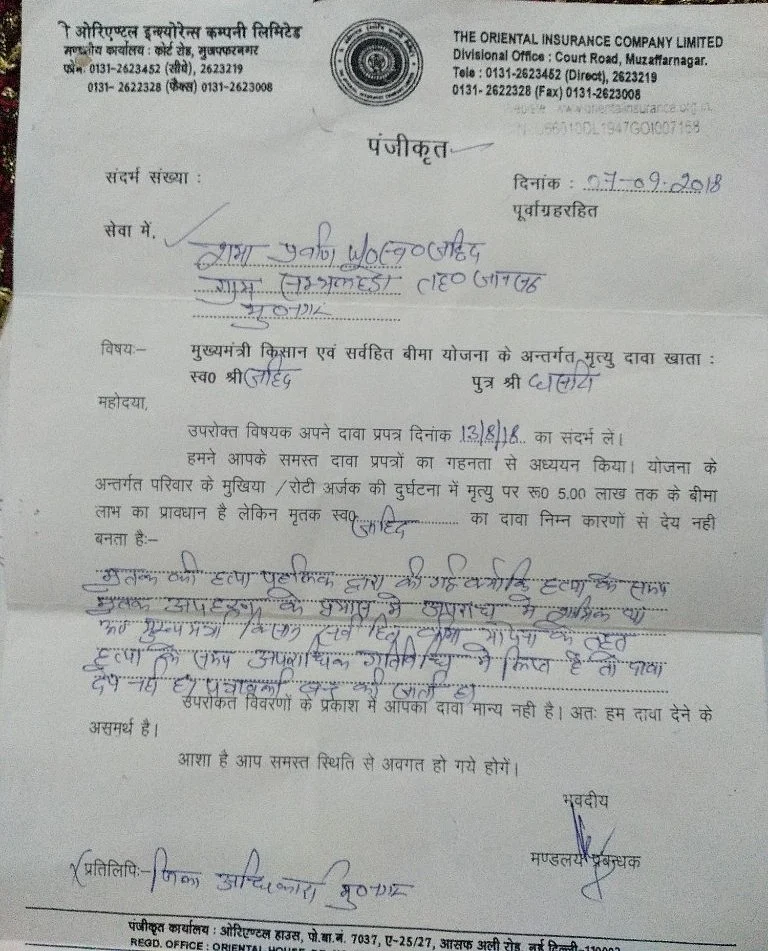 ओरिएण्टल इन्श्योरेन्स कम्पनी लिमिटेड
मण्डलीय कार्यालय : कोर्ट रोड, मुजफ्फरनगर
फोन: 0131-2623452 (सीधे), 2623219
0131- 2622328 (फैक्स) 0131-2623008
THE ORIENTAL INSURANCE COMPANY LIMITED
Divisional Office : Court Road, Muzaffarnagar.
Tele : 0131-2623452 (Direct), 2623219
0131- 2622328 (Fax) 0131-2623008
www.orientalinsurance.org.in
पंजीकृत
संदर्भ संख्या :
दिनांक : 07-09-2018
पूर्वाग्रहरहित
सेवा में,
W/O स्व० जाहिद
ग्राम तह० जानसठ
मु०नगर
विषयः- मुख्यमंत्री किसान एवं सर्वहित बीमा योजना के अन्तर्गत मृत्यु दावा खाता :
स्व0 श्री जाहिद पुत्र श्री
महोदया,
उपरोक्त विषयक अपने दावा प्रपत्र दिनांक 13/8/18 का संदर्भ लें।
हमने आपके समस्त दावा प्रपत्रों का गहनता से अध्ययन किया। योजना के
अन्तर्गत परिवार के मुखिया /रोटी अर्जक की दुर्घटना में मृत्यु पर रू0 5.00 लाख तक के बीमा
लाभ का प्रावधान है लेकिन मृतक स्व0 जाहिद का दावा निम्न कारणों से देय नही
बनता है:-
मृतक की हत्या द्वारा की गई क्योंकि हत्या के समय
मृतक अपहरण के प्रयास में अपराध में शामिल था
मुख्यमंत्री किसान सर्वहित बीमा योजना के तहत
हत्या के समय अपराधिक गतिविधि में लिप्त है तो दावा
देय नहीं है। पत्रावली बन्द की जाती है।
उपरोक्त विवरणों के प्रकाश में आपका दावा मान्य नही है। अतः हम दावा देने के
असमर्थ है।
आशा है आप समस्त स्थिति से अवगत हो गये होगें।
भवदीय
मण्डलय प्रबन्धक
प्रतिलिपिः- जिला अधिकारी मु०नगर
पंजीकृत कार्यालय : ओरिएण्टल हाउस, पो.बा.नं. 7037, ए-25/27, आसफ अली रोड, नई दिल्ली-110002
REGD. OFFICE : ORIENTAL HOUSE